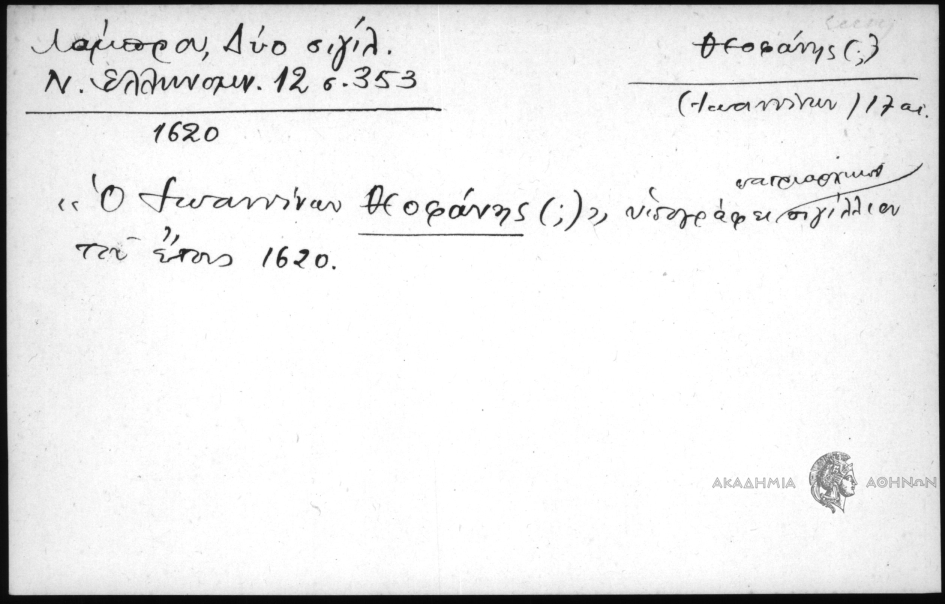 Λάμπρου, Δύο σιγίλ.
Ν. Ἑλληνομν. 12 σ. 353
1620
Θεοφάνης (;)
(Ἰωαννίνων) 17 αι.
"Ὁ Ἰωαννίνων Θεοφάνης (;)", ὑπογράφει πατριαρχικόν σιγίλλιον
τοῦ ἔτους 1620.
ΑΚΑΔΗΜΙΑ ΑΘΗΝΩΝ